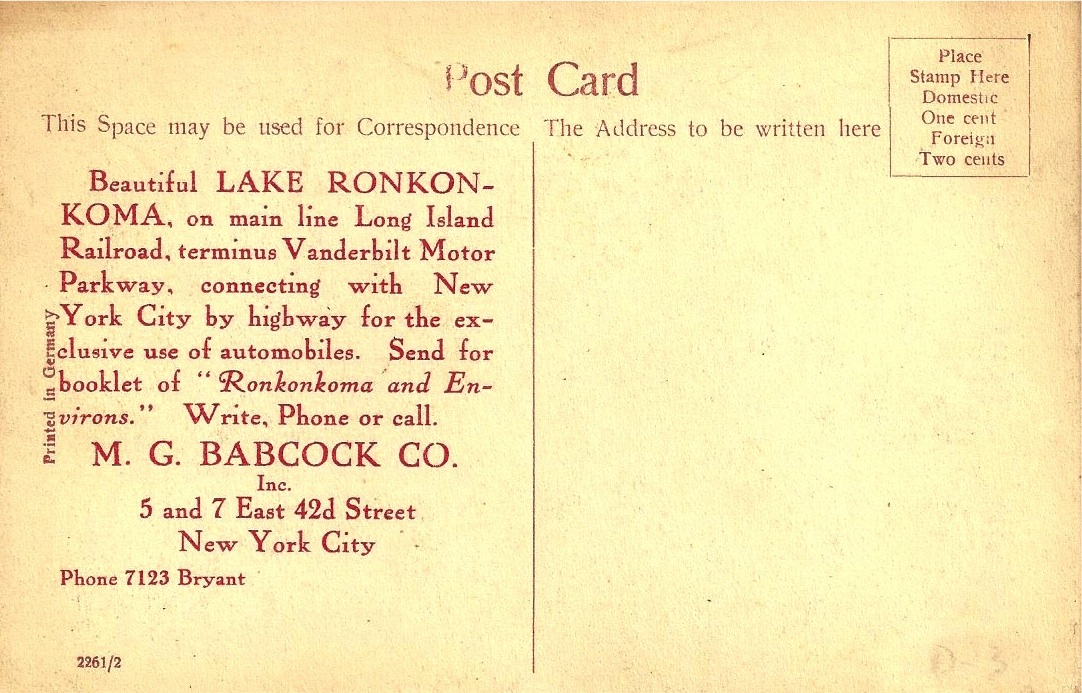 Post Card
This Space may be used for Correspondence
The Address to be written here
Place
Stamp Here
Domestic
One cent
Foreign
Two cents
Beautiful LAKE RONKON-
KOMA, on main line Long Island
Railroad, terminus Vanderbilt Motor
Parkway, connecting with New
York City by highway for the ex-
clusive use of automobiles. Send for
booklet of "Ronkonkoma and En-
virons." Write, Phone or call.
M. G. BABCOCK CO.
Inc.
5 and 7 East 42d Street
New York City
Phone 7123 Bryant
Printed in Germany
2261/2